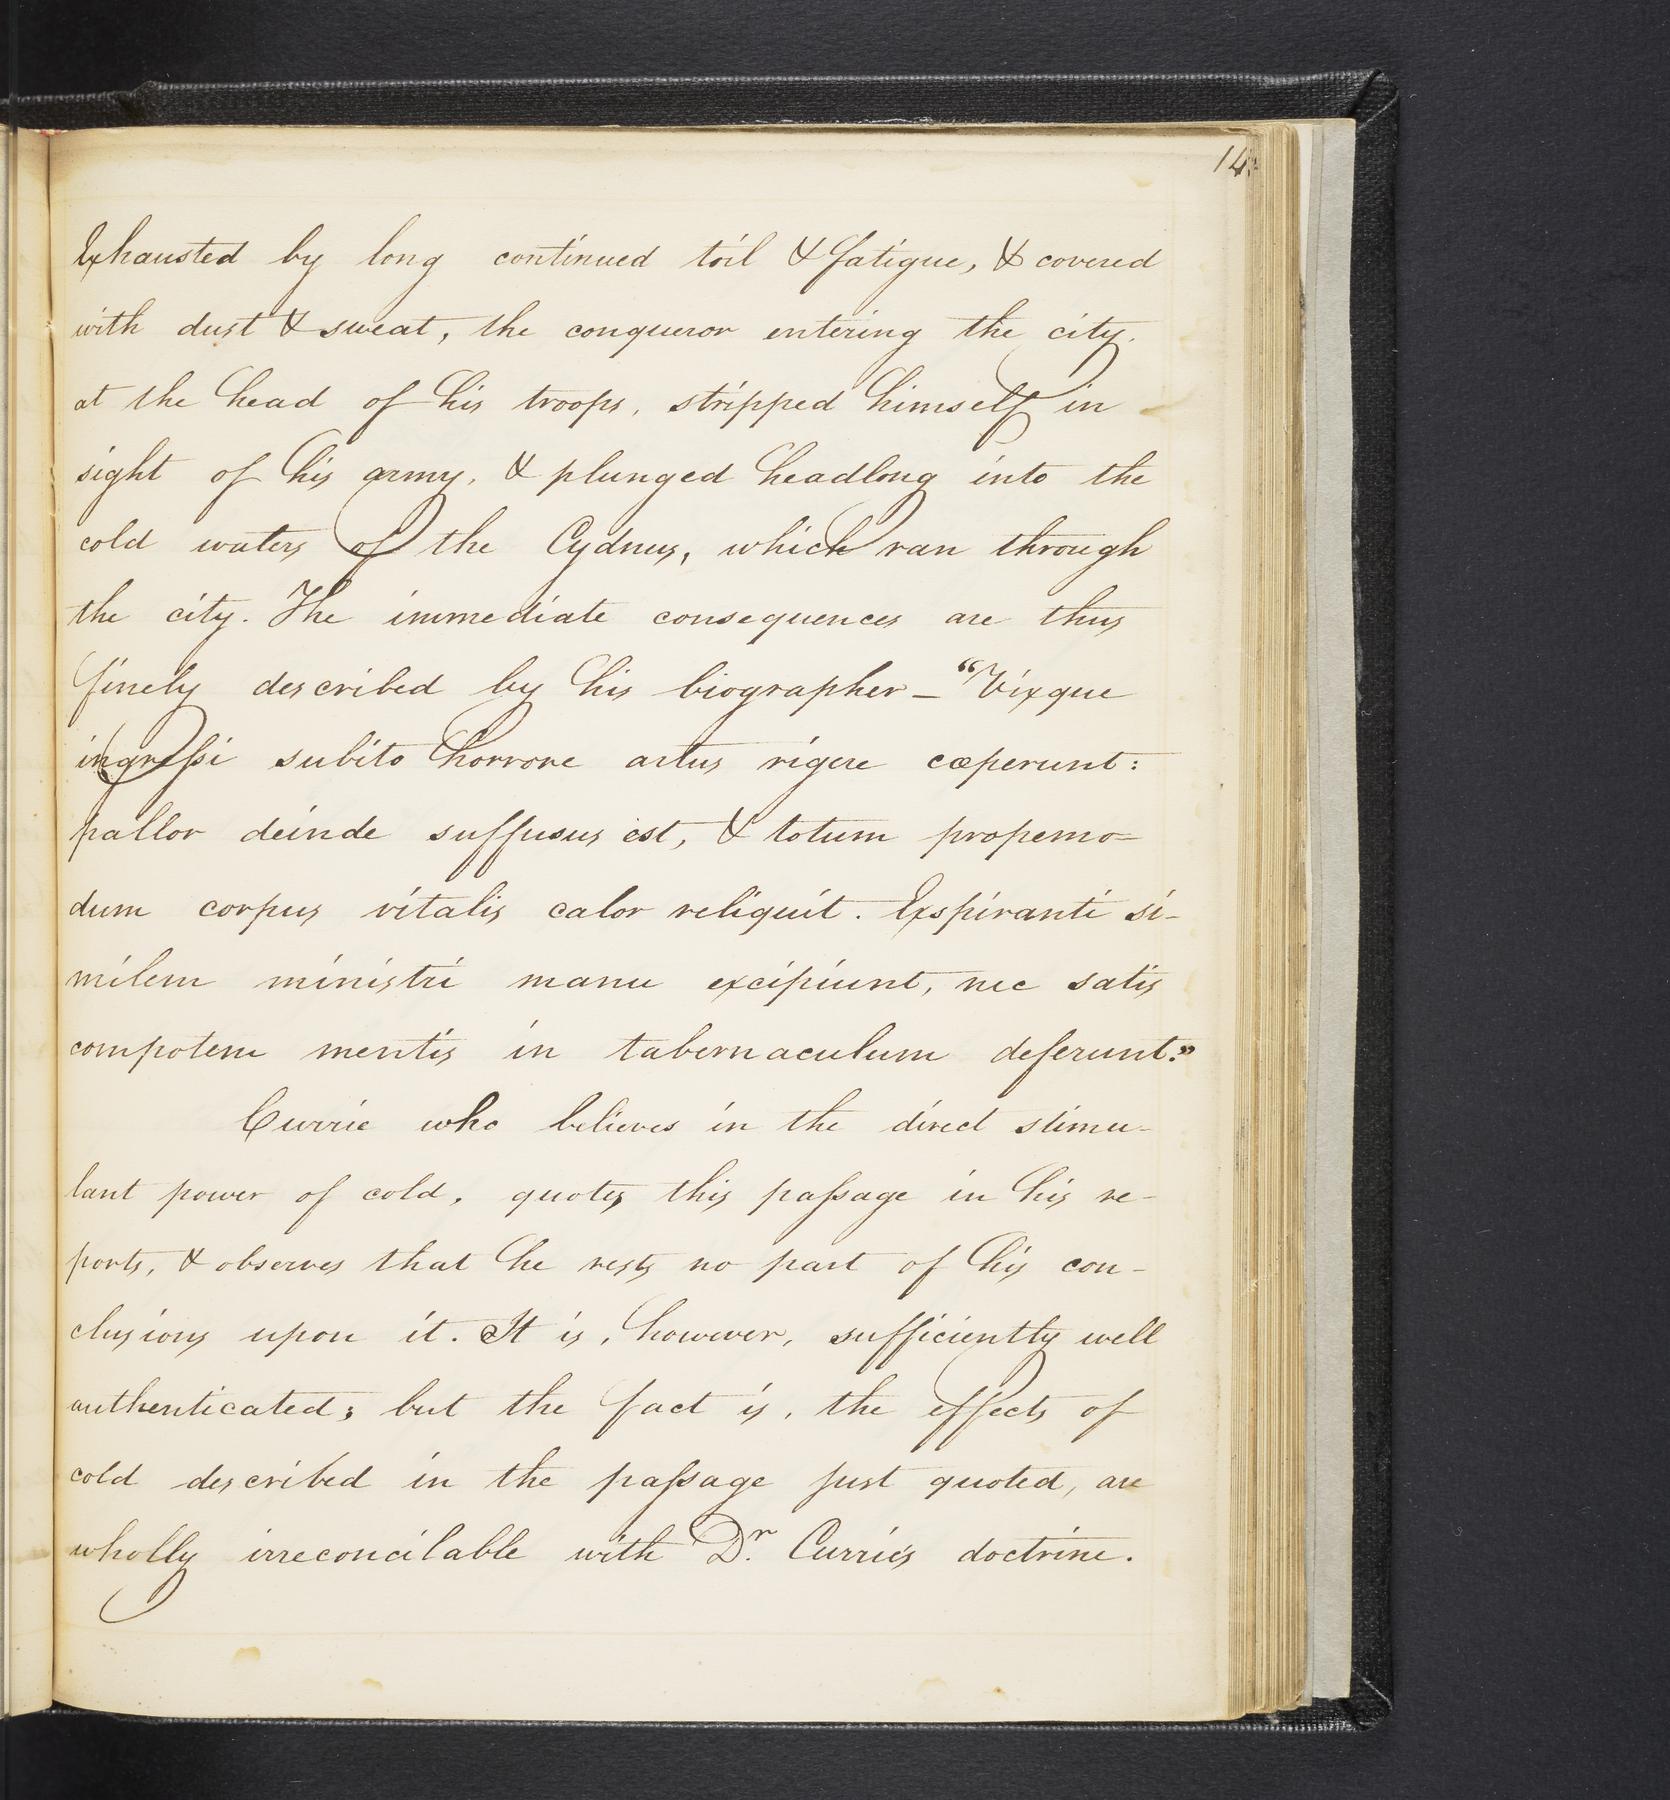 14.
Exhausted by long continued toil & fatigue, & covered
with dust & sweat, the conqueror entering the city,
at the head of his troops, stripped himself in
sight of his army, & plunged headlong into the
cold waters of the Cydnus, which ran through
the city. The immediate consequences are thus
finely described by his biographer – "Vixque
ingreſsi subito horrore artus rigere cœperunt:
pallor deinde suffusus est, & totum propemo=
dum corpus vitalis calor reliquit. Expiranti si-
milem ministri manu excipiunt, nec satis
compotem mentis in tabernaculum deferunt."
Currie who believes in the direct stimu-
lant power of cold, quotes this paſsage in his re-
ports, & observes that he rests no part of his con-
clusions upon it. It is, however, sufficiently well
authenticated; but the fact is, the effects of
cold described in the paſsage just quoted, are
wholly irreconcilable with Dr. Currie's doctrine.